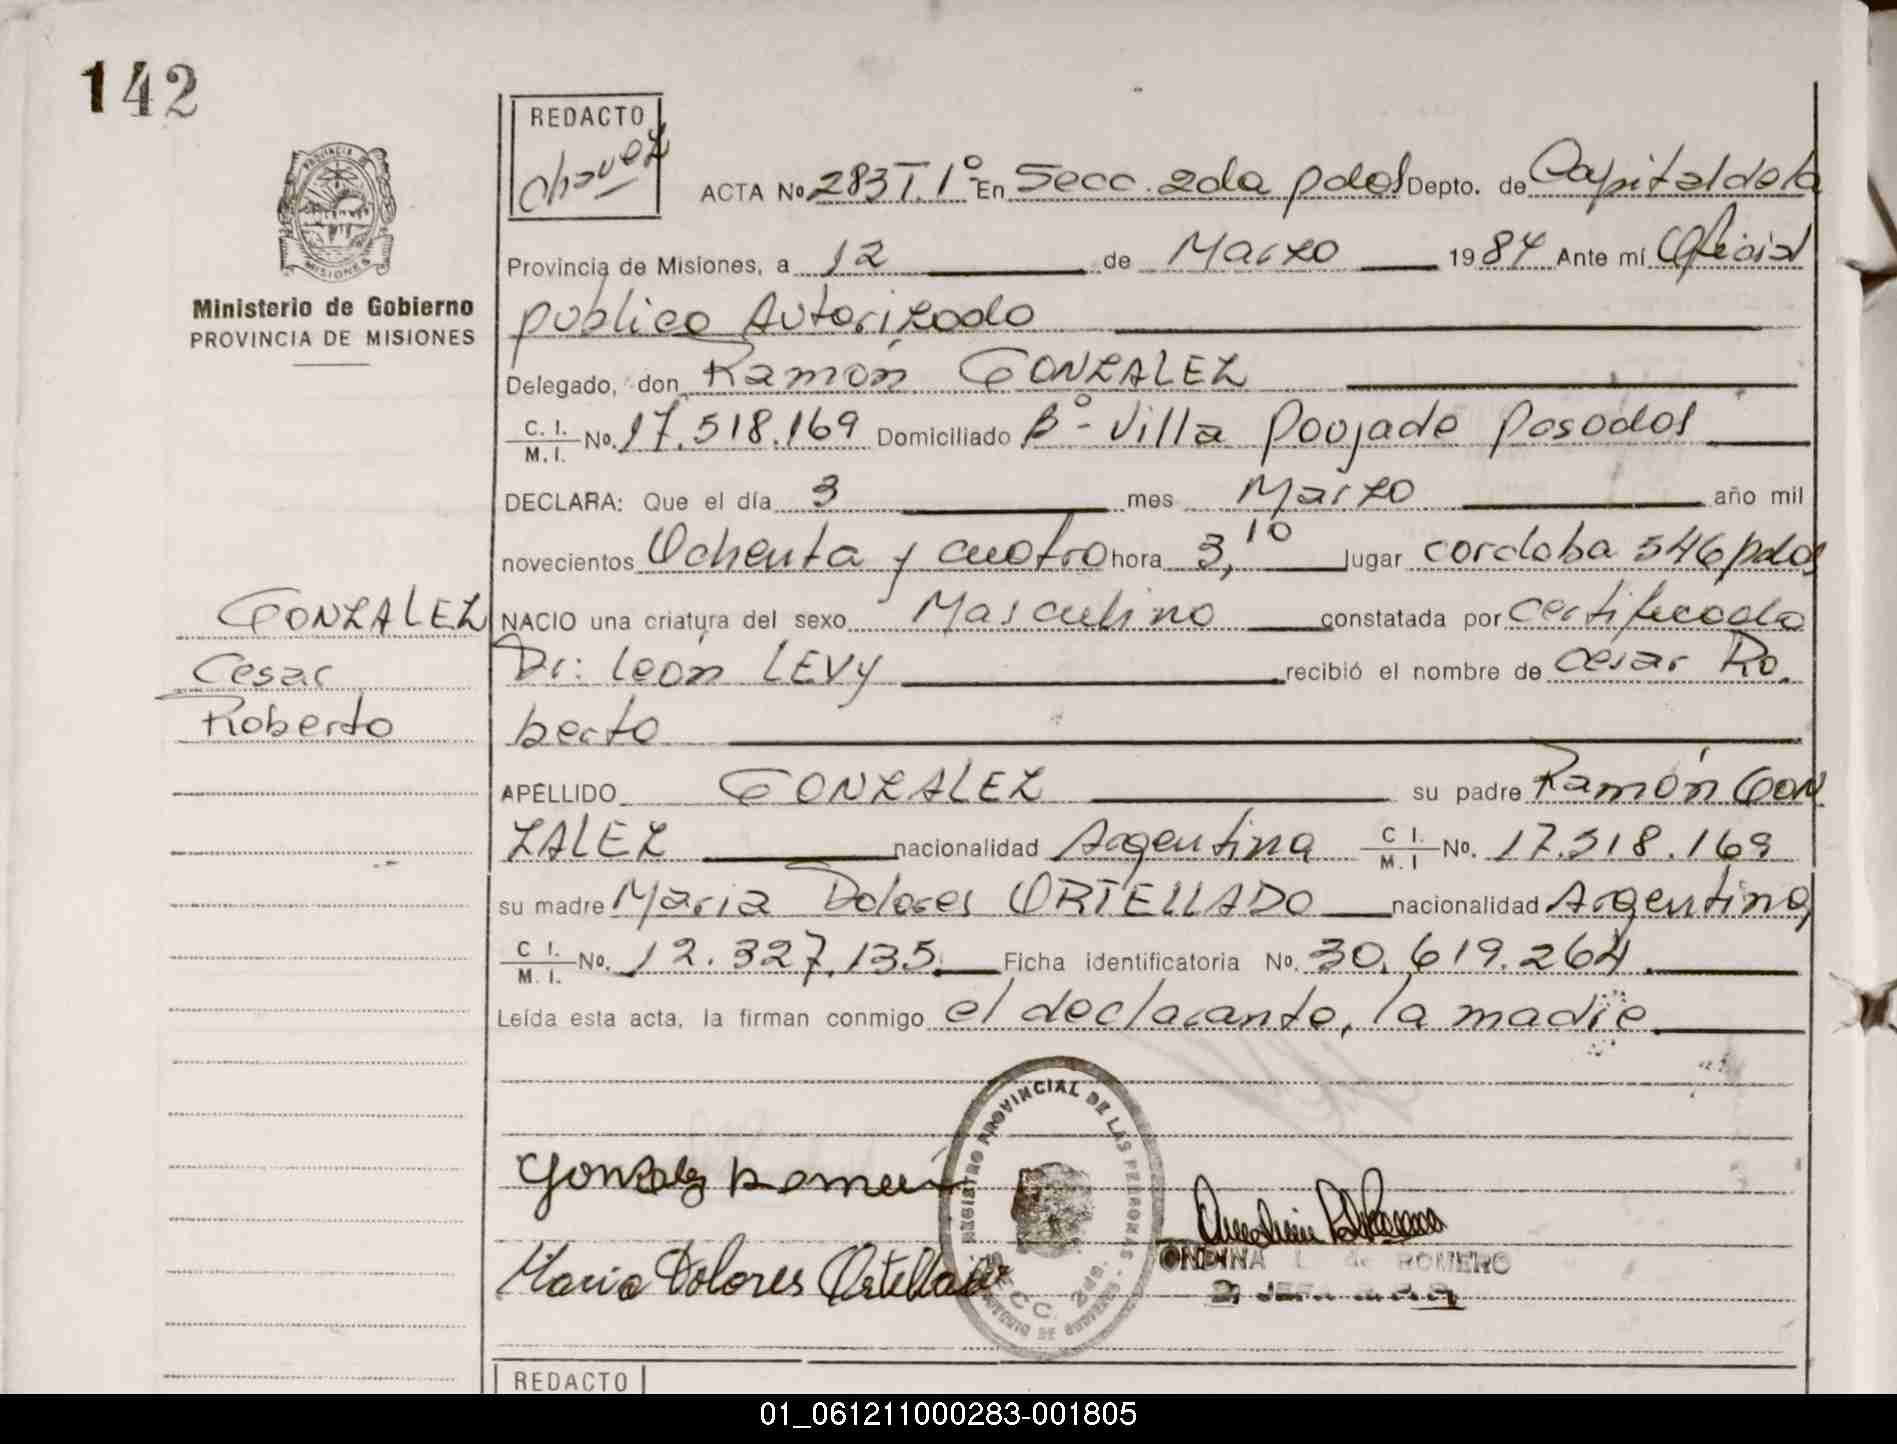 142
REDACTO
Chavez
PROVINCIA DE
MISIONES
Ministerio de Gobierno
PROVINCIA DE MISIONES
ACTA No. 283 T. 1º En Secc. 2da pdas Depto. de Capital de la
Provincia de Misiones, a 12 de Marzo 1984 Ante mí Oficial
publico Autorizado
Delegado, don Ramón GONZALEZ
C. I. / M. I. No. 17.518.169 Domiciliado Bº - Villa Poujade Posadas
DECLARA: Que el día 3 mes Marzo año mil
novecientos Ochenta y cuatro hora 3,10 lugar cordoba 546 pdas
NACIO una criatura del sexo Masculino constatada por certificado
Dr: León LEVY recibió el nombre de Cesar Ro.
berto
GONZALEZ
Cesar
Roberto
APELLIDO GONZALEZ su padre Ramón GON
ZALEZ nacionalidad Argentina C I. / M. I No. 17.518.169
su madre Maria Dolores ORTELLADO nacionalidad Argentina,
C I. / M. I. No. 12.327.135. Ficha identificatoria No. 30.619.264.
Leída esta acta, la firman conmigo el declarante, la madre.
REGISTRO PROVINCIAL DE LAS PERSONAS
SECC. 2da.
Gonzalez Ramón
Maria Dolores Ortellado
ONDINA L. de ROMERO
REDACTO
01_061211000283-001805